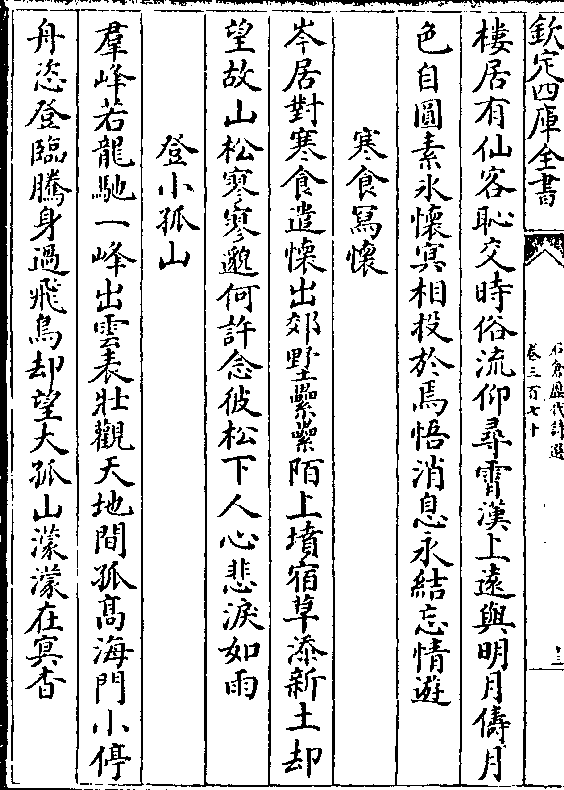 欽定四庫全書
石倉歷代詩選
卷三百七十
十三
樓居有仙客恥交時俗流仰尋霄漢上遠與明月儔月
色自圓素氷懷冥相投於焉悟消息永結忘情遊
寒食寫懷
岑居對寒食遣懷出郊野纍纍陌上墳宿草添新土却
望故山松寥寥邈何許念彼松下人心悲淚如雨
登小孤山
羣峰若龍馳一峰出雲表壯觀天地間孤髙海門小停
舟恣登臨騰身過飛鳥却望大孤山濛濛在冥杳